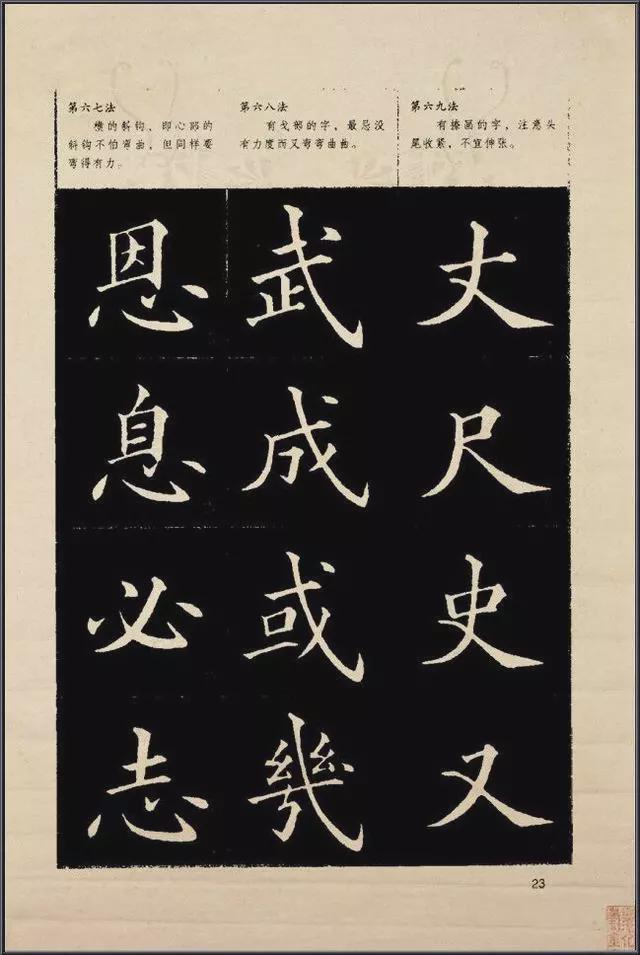 第六七法
横的斜钩，即心部的
斜钩不怕弯曲，但同样要
弯得有力。
恩
息
必
志
第六八法
有戈部的字，最忌没
有力度而又弯弯曲曲。
武
成
或
幾
第六九法
有捺画的字，注意头
尾收紧，不宜伸张。
丈
尺
史
又
23